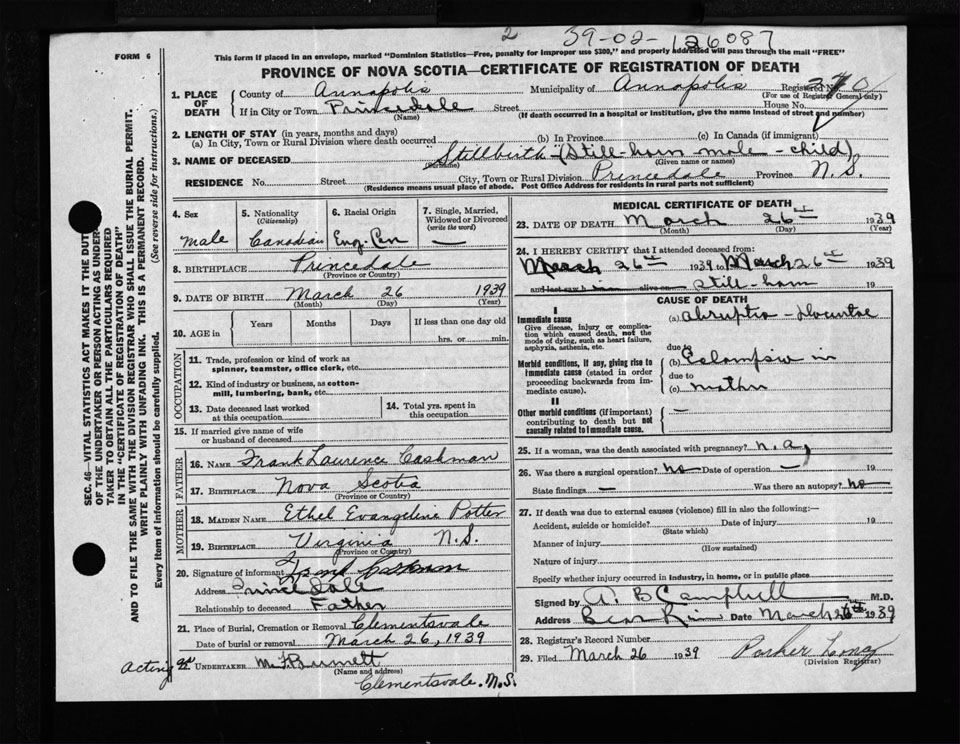 2 39-02-126087
FORM 6
This form if placed in an envelope, marked "Dominion Statistics—Free, penalty for improper use $300," and properly addressed will pass through the mail "FREE"
PROVINCE OF NOVA SCOTIA—CERTIFICATE OF REGISTRATION OF DEATH
1. PLACE OF DEATH
County of Annapolis Municipality of Annapolis Registered No.
(For use of Registrar General only)
If in City or Town Princedale Street House No.
(Name) (If death occurred in a hospital or institution, give the name instead of street and number)
2. LENGTH OF STAY (in years, months and days)
(a) In City, Town or Rural Division where death occurred (b) In Province (c) In Canada (if immigrant)
3. NAME OF DECEASED "Stillbirth" (Still-born-male-child)
(Surname) (Given name or names)
RESIDENCE No. Street City, Town or Rural Division Princedale Province N.S.
(Residence means usual place of abode. Post Office Address for residents in rural parts not sufficient)
SEC. 46—VITAL STATISTICS ACT MAKES IT THE DUTY
OF THE UNDERTAKER OR PERSON ACTING AS UNDER-
TAKER TO OBTAIN ALL THE PARTICULARS REQUIRED
IN THE "CERTIFICATE OF REGISTRATION OF DEATH"
AND TO FILE THE SAME WITH THE DIVISION REGISTRAR WHO SHALL ISSUE THE BURIAL PERMIT.
WRITE PLAINLY WITH UNFADING INK. THIS IS A PERMANENT RECORD.
Every item of information should be carefully supplied. (See reverse side for instructions.)
4. Sex
Male
5. Nationality
(Citizenship)
Canadian
6. Racial Origin
Eng.
7. Single, Married, Widowed or Divorced
(write the word)
—
8. BIRTHPLACE Princedale
(Province or Country)
9. DATE OF BIRTH March 26 1939
(Month) (Day) (Year)
10. AGE in
Years Months Days If less than one day old
hrs. or min.
OCCUPATION
11. Trade, profession or kind of work as
spinner, teamster, office clerk, etc.
12. Kind of industry or business, as cotton-
mill, lumbering, bank, etc.
13. Date deceased last worked
at this occupation
14. Total yrs. spent in
this occupation
15. If married give name of wife
or husband of deceased
FATHER
16. NAME Frank Laurence Cashman
17. BIRTHPLACE Nova Scotia
(Province or Country)
MOTHER
18. MAIDEN NAME Ethel Evangeline Potter
19. BIRTHPLACE Virginia N.S.
(Province or Country)
20. Signature of informant Frank Cashman
Address Princedale
Relationship to deceased Father
21. Place of Burial, Cremation or Removal Clementsvale
Date of burial or removal March 26, 1939
Acting 22. UNDERTAKER
(Name and address)
Clementsvale. N.S.
MEDICAL CERTIFICATE OF DEATH
23. DATE OF DEATH March 26th 1939
(Month) (Day) (Year)
24. I HEREBY CERTIFY that I attended deceased from:
March 26th 1939 to March 26th 1939
and last saw h im alive on Still-born 19
CAUSE OF DEATH
I
Immediate cause
Give disease, injury or complica-
tion which caused death, not the
mode of dying, such as heart failure,
asphyxia, asthenia, etc.
(a) Abruptio-Placentae
due to
Morbid conditions, if any, giving rise to
immediate cause (stated in order
proceeding backwards from im-
mediate cause).
(b) Eclampsia in
due to
(c) mother
II
Other morbid conditions (if important)
contributing to death but not
causally related to immediate cause.
—
25. If a woman, was the death associated with pregnancy? n.a.
26. Was there a surgical operation? no Date of operation — 19
State findings — Was there an autopsy? no
27. If death was due to external causes (violence) fill in also the following:—
Accident, suicide or homicide? Date of injury 19
(State which)
Manner of injury
(How sustained)
Nature of injury
Specify whether injury occurred in industry, in home, or in public place
Signed by A. B Campbell M.D.
Address Bear River Date March 26th 1939
28. Registrar's Record Number
29. Filed March 26 1939 Parker Long
(Division Registrar)